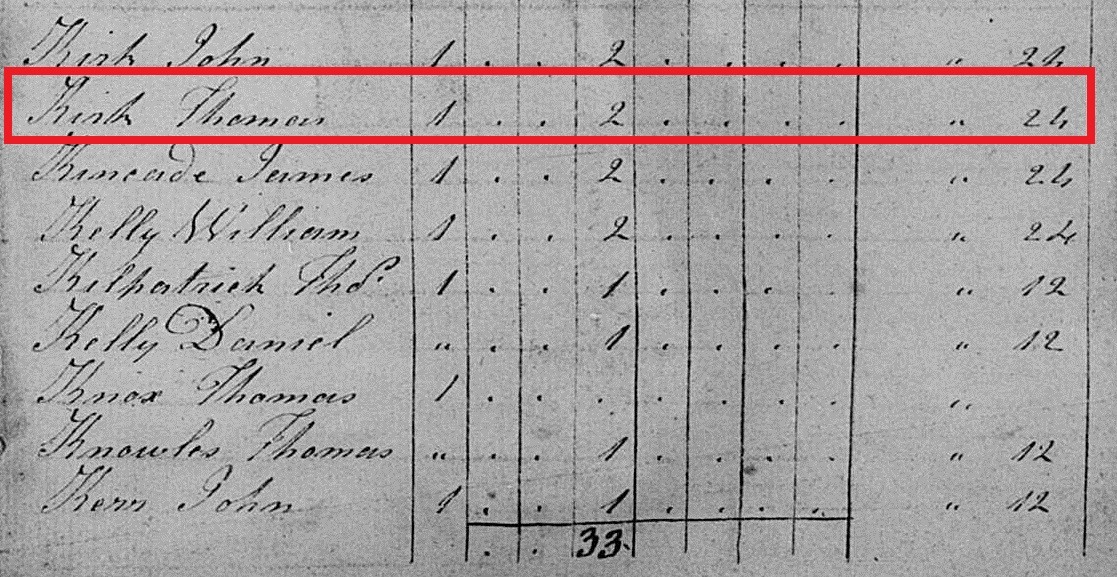 Kirk John 1 . . 2 . . . . " 24
Kirk Thomas 1 . . 2 . . . . " 24
Kincade James 1 . . 2 . . . . " 24
Kelly William 1 . . 2 . . . . " 24
Kilpatrick Thos. 1 . . 1 . . . . " 12
Kelly Daniel " . . 1 . . . . " 12
Knox Thomas 1 . . . . . . . "
Knowles Thomas " . . 1 . . . . " 12
Kerr John 1 . . 1 . . . . " 12
. . 33.